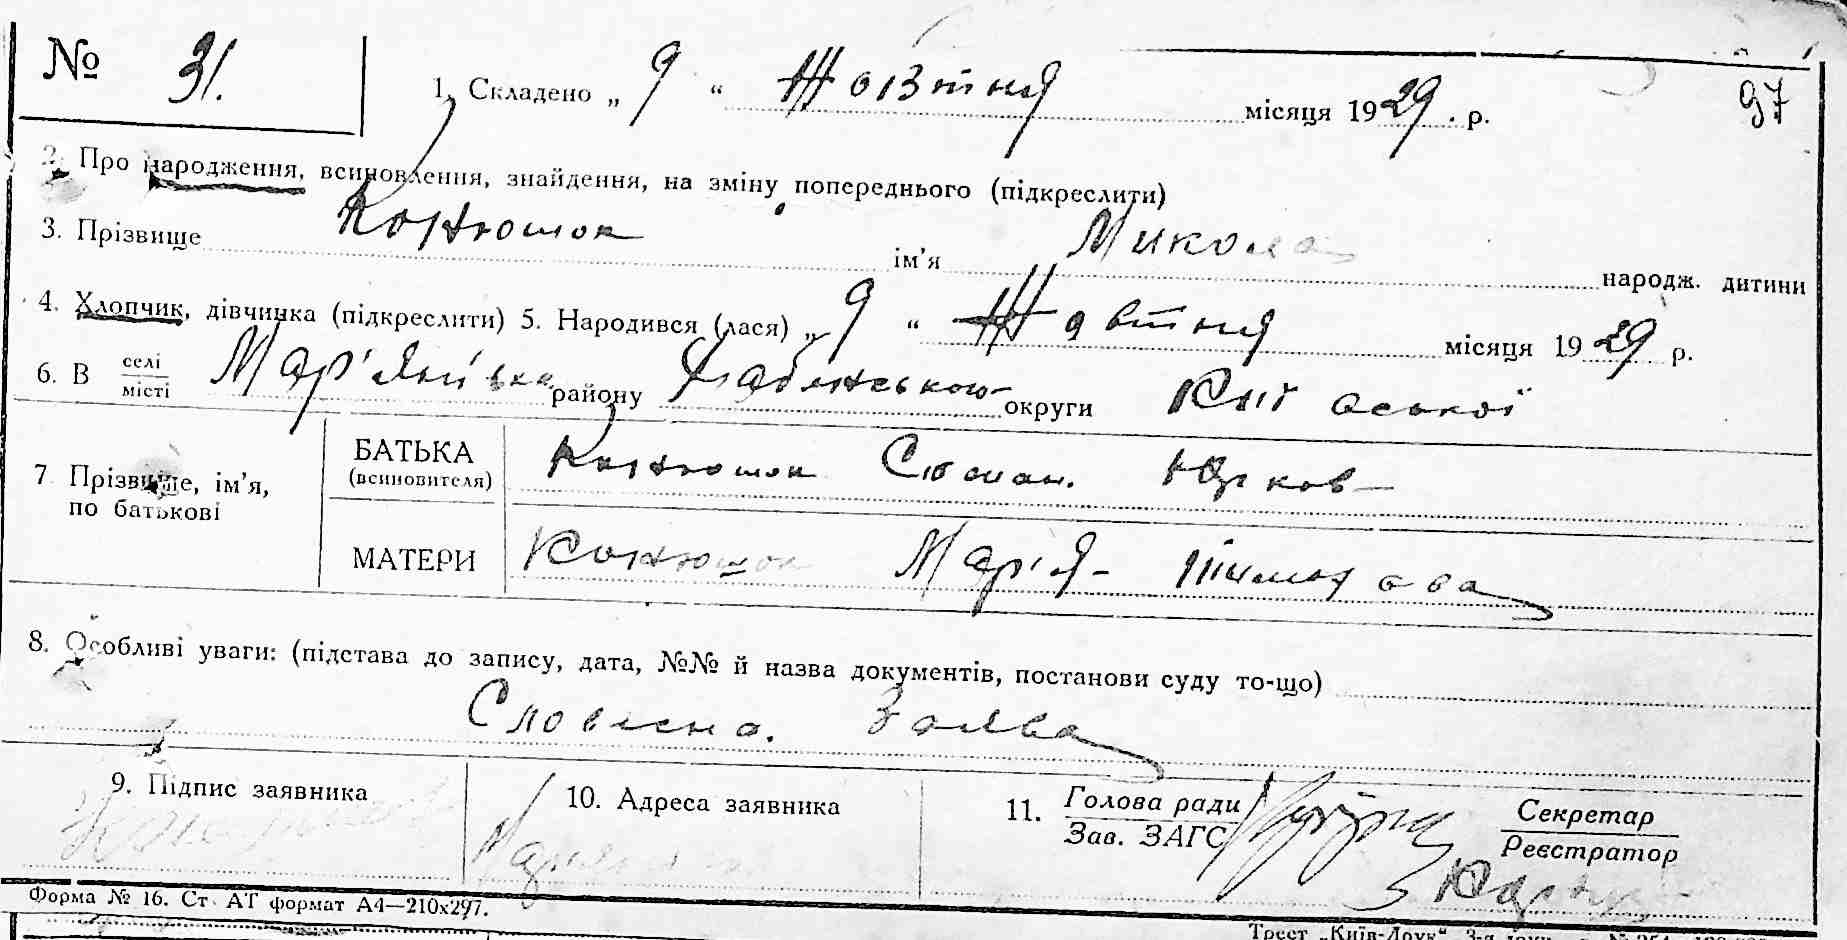 № 31.
97
1. Складено „ 9 “ Жовтня місяця 1929 . р.
2. Про народження, всиновлення, знайдення, на зміну попереднього (підкреслити)
3. Прізвище Конюшок ім’я Микола народж. дитини
4. Хлопчик, дівчинка (підкреслити) 5. Народився (лася) „ 9 “ Жовтня місяця 1929 р.
6. В селі місті Мар'янівка району округи Київської
7 Прізвище, ім’я, по батькові
БАТЬКА (всиновителя) Конюшок Юрков
МАТЕРИ Конюшок Мар'я
8. Особливі уваги: (підстава до запису, дата, №№ й назва документів, постанови суду то-що)
Словесна. Заява
9. Підпис заявника
10. Адреса заявника
11. Голова ради Зав. ЗАГС
Секретар Реєстратор
Форма № 16. Ст АТ формат А4—210х297.
Трест „Київ-Друк“